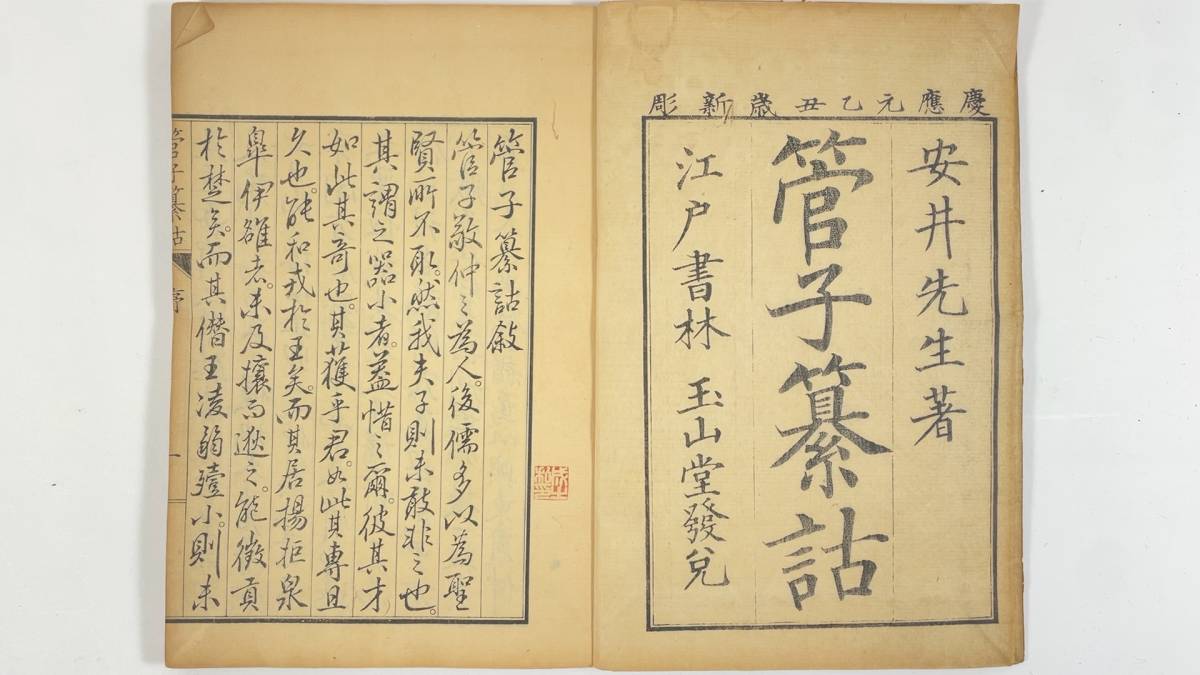 慶應元乙丑歳新彫
安井先生著
管子纂詁
江戶書林 玉山堂發兌
管子纂詁敍
管子敬仲之為人。後儒多以為聖
賢所不取。然我夫子則未敢非之也。
其謂之器小者。蓋惜之爾。彼其才
如此其奇也。其獲乎君。如此其專且
久也。能和戎於王矣。而其居揚拒泉
皐伊雒者。未及攘而逖之。能徵貢
於楚矣。而其僭王凌弱殪小。則未
管子纂詁 序 一